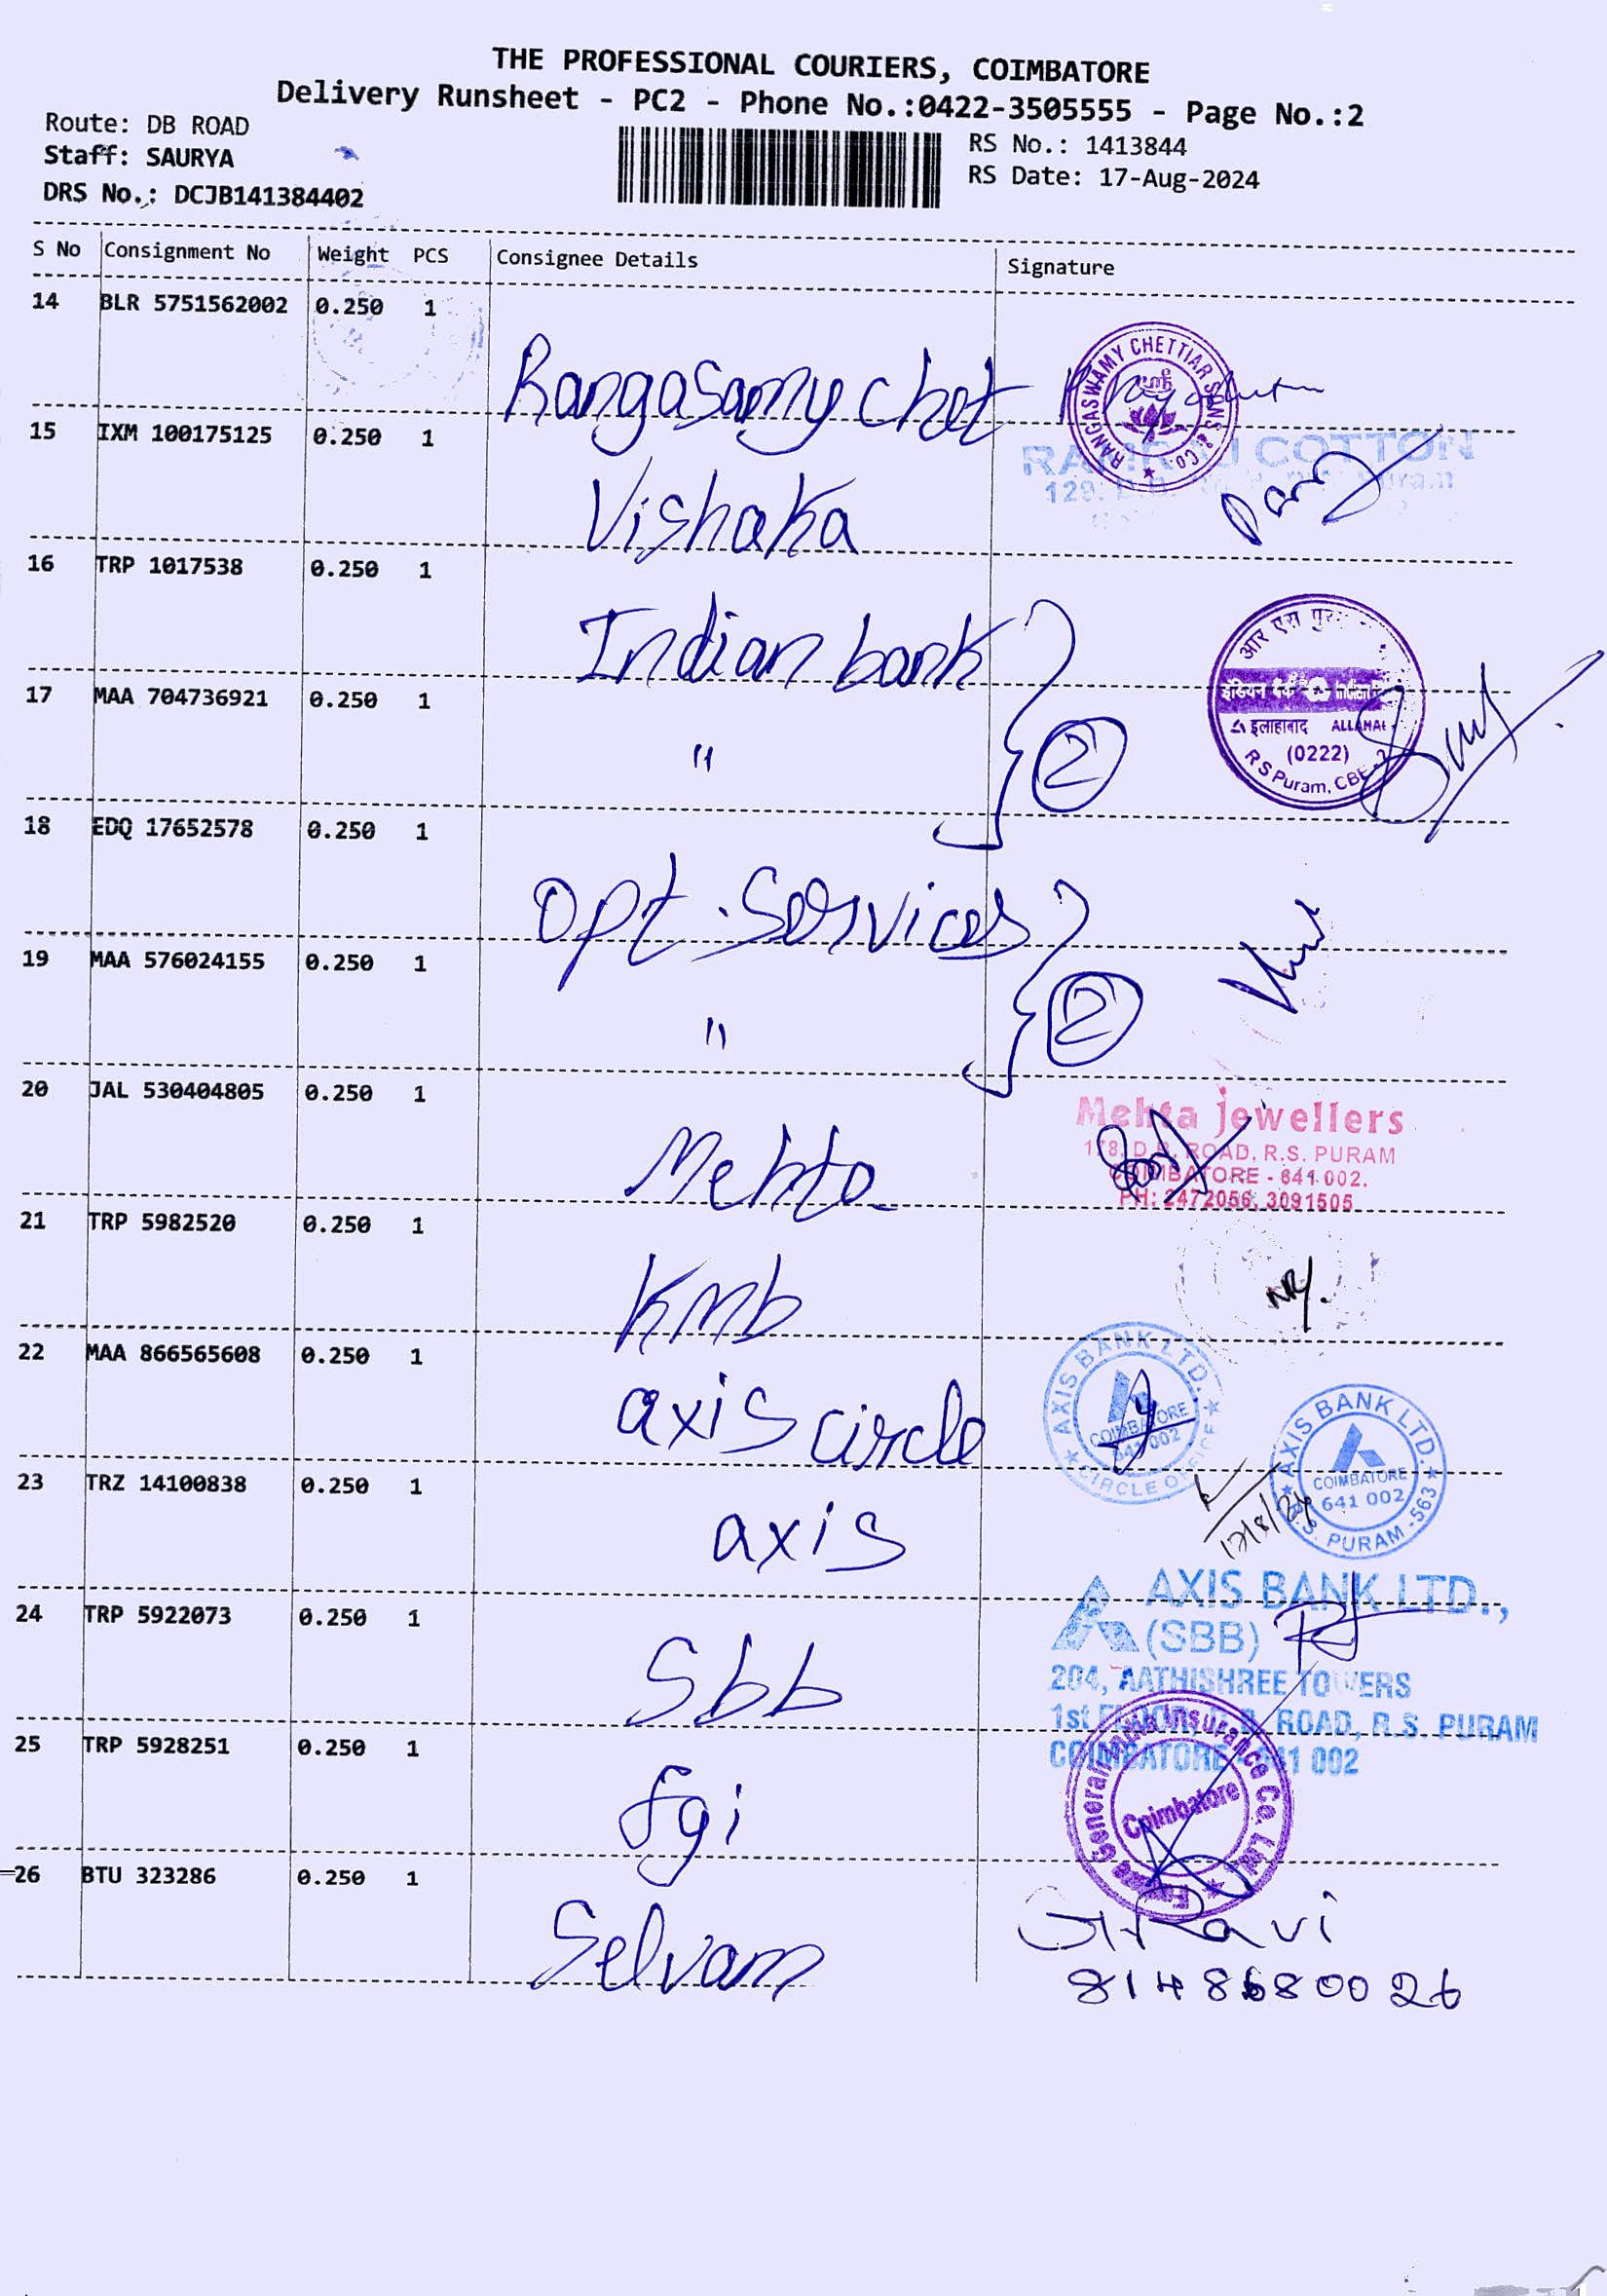 THE PROFESSIONAL COURIERS, COIMBATORE
Delivery Runsheet - PC2 - Phone No.:0422-3505555 - Page No.:2
Route: DB ROAD
Staff: SAURYA
DRS No.: DCJB141384402
RS No.: 1413844
RS Date: 17-Aug-2024
S No Consignment No Weight PCS Consignee Details Signature
14 BLR 5751562002 0.250 1
Rangasamy chet
RANGASWAMY CHETTIAR SONS & CO.
15 IXM 100175125 0.250 1
Vishaka
COTTON
129,
16 TRP 1017538 0.250 1
Indian bank
आर एस पुर
इंडियन बैंक Indian
इलाहाबाद ALLAHA
(0222)
R S Puram, CBE - 2
17 MAA 704736921 0.250 1
" 2
18 EDQ 17652578 0.250 1
Opt. Services
19 MAA 576024155 0.250 1
" 2
20 JAL 530404805 0.250 1
Mehta
Mehta Jewellers
178, D.B. ROAD, R.S. PURAM
COIMBATORE - 641 002.
PH: 2472056, 3091505
21 TRP 5982520 0.250 1
Kmb
22 MAA 866565608 0.250 1
axis circle
AXIS BANK LTD.
COIMBATORE
641 002
CIRCLE OFFICE
23 TRZ 14100838 0.250 1
axis
AXIS BANK LTD.
COIMBATORE
641 002
R.S. PURAM -563
17/8/24
24 TRP 5922073 0.250 1
Sbb
AXIS BANK LTD.,
(SBB)
204, AATHISHREE TOWERS
1st FLOOR, D.B. ROAD, R.S. PURAM
COIMBATORE - 641 002
25 TRP 5928251 0.250 1
fgi
Future Generali India Insurance Co. Ltd.
Coimbatore
26 BTU 323286 0.250 1
Selvam
Ravi
8148680026